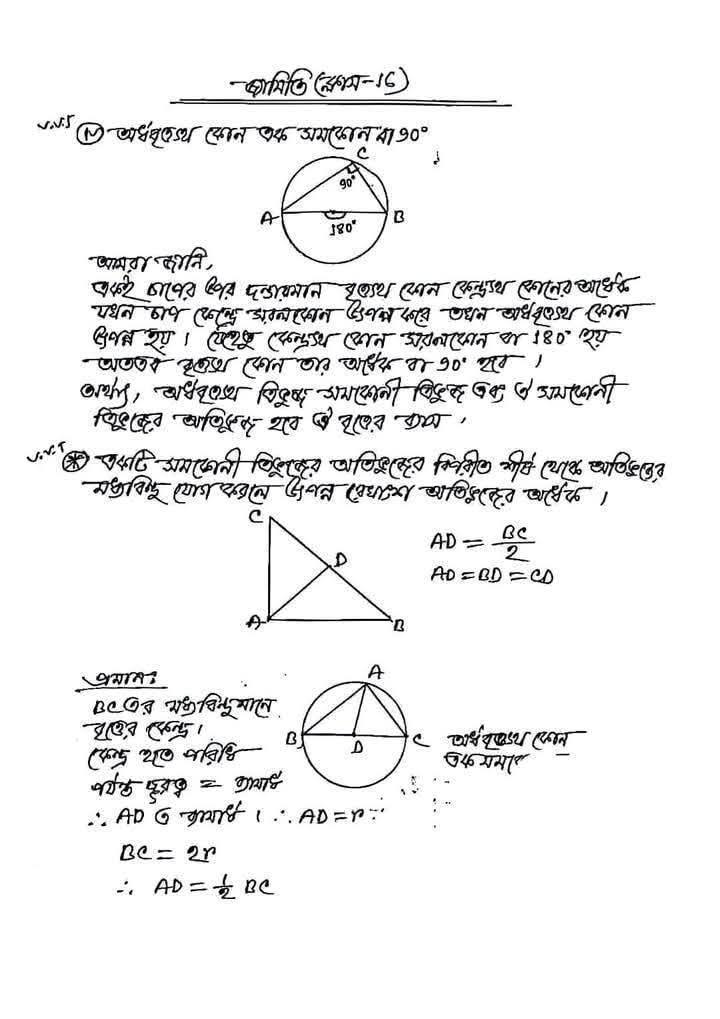 জ্যামিতি (ক্লাস-16)
V.V.I (১) অর্ধবৃত্তস্থ কোন এক সমকোন বা 90°
C
90°
A B
180°
আমরা জানি,
একই চাপের উপর দন্ডায়মান বৃত্তস্থ কোন কেন্দ্রস্থ কোনের অর্ধেক
যখন চাপ কেন্দ্রে সরলকোন উৎপন্ন করে তখন অর্ধবৃত্তস্থ কোন
উৎপন্ন হয়। যেহেতু কেন্দ্রস্থ কোন সরলকোন বা 180° হয়
অতএব বৃত্তস্থ কোন তার অর্ধেক বা 90° হবে।
অর্থাৎ, অর্ধবৃত্তস্থ ত্রিভুজ সমকোনী ত্রিভুজ এবং ঐ সমকোনী
ত্রিভুজের অতিভুজ হবে ঐ বৃত্তের ব্যাস।
V.V.I * একটি সমকোনী ত্রিভুজের অতিভুজের বিপরীত শীর্ষ থেকে অতিভুজের
মধ্যবিন্দু যোগ করলে উৎপন্ন রেখাংশ অতিভুজের অর্ধেক।
C
D
A B
AD = BC/2
AD = BD = CD
প্রমানঃ
BC এর মধ্যবিন্দু মানে
বৃত্তের কেন্দ্র।
কেন্দ্র হতে পরিধি
পর্যন্ত দূরত্ব = ব্যাসার্ধ
∴ AD ও ব্যাসার্ধ। ∴ AD = r
BC = 2r
∴ AD = 1/2 BC
A
B D C
অর্ধবৃত্তস্থ কোন
এক সমকো